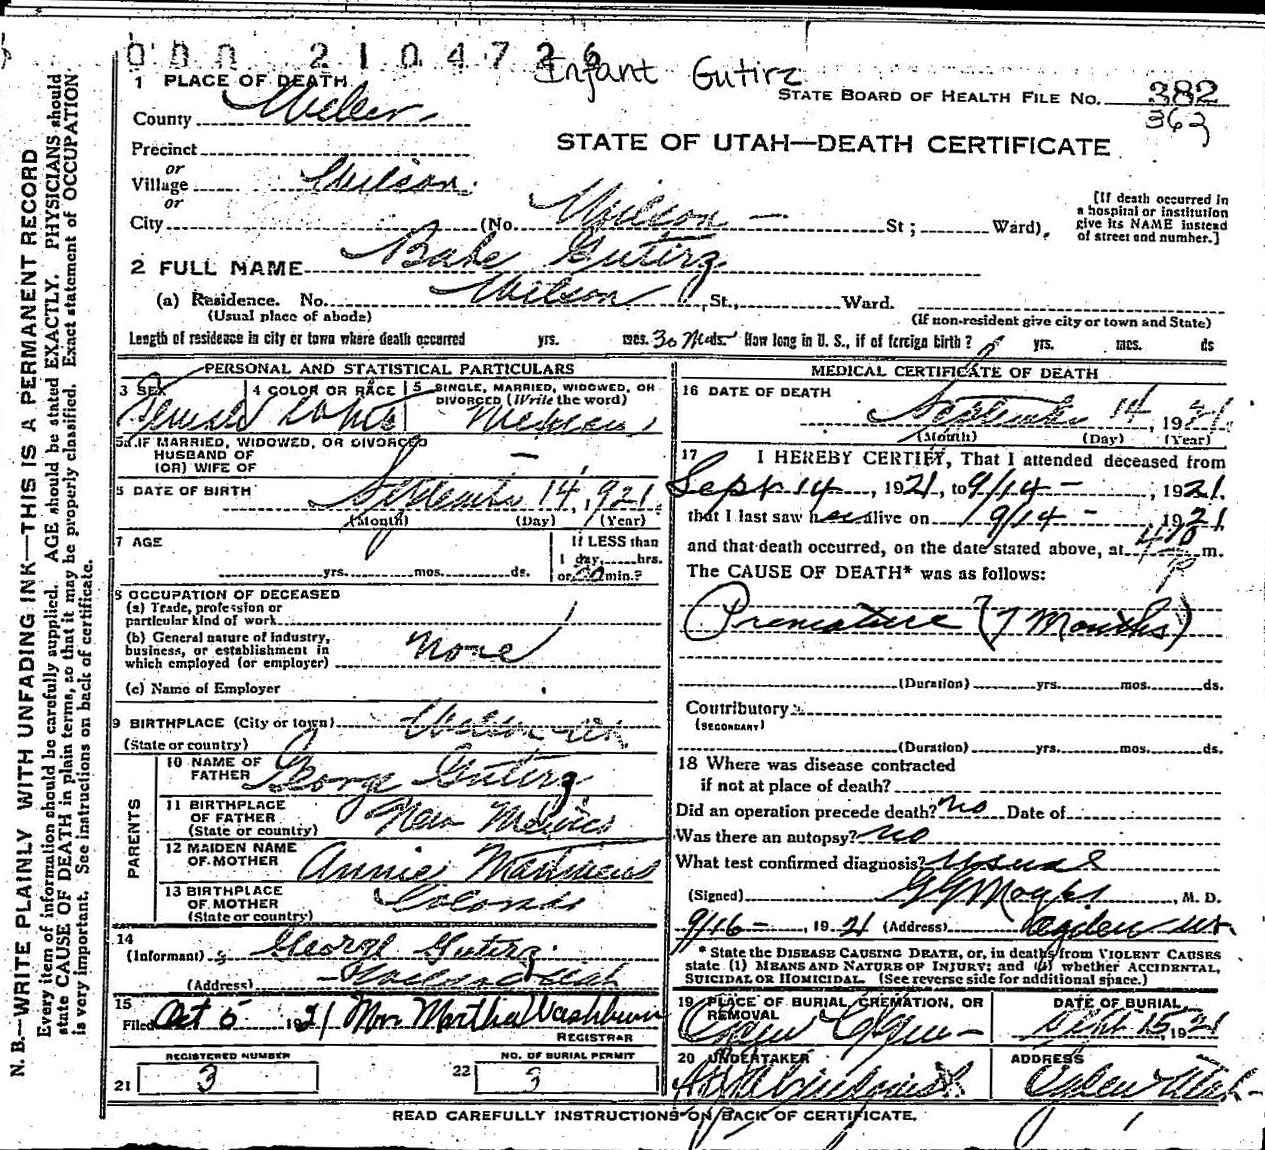 000 2104726
Infant Gutirz
1 PLACE OF DEATH
STATE BOARD OF HEALTH FILE No. 382
363
County Weber
STATE OF UTAH—DEATH CERTIFICATE
Precinct
or
Village Wilson
or
City (No. Wilson — St; Ward)
[If death occurred in a hospital or institution give its NAME instead of street and number.]
2 FULL NAME Babe Gutirz
(a) Residence. No. Wilson St., Ward.
(Usual place of abode) (If non-resident give city or town and State)
Length of residence in city or town where death occurred yrs. mos. 30 How long in U. S., if of foreign birth? yrs. mos. ds
PERSONAL AND STATISTICAL PARTICULARS
3 SEX 4 COLOR OR RACE 5 SINGLE, MARRIED, WIDOWED, OR DIVORCED (Write the word)
Female
5a IF MARRIED, WIDOWED, OR DIVORCED
HUSBAND OF
(OR) WIFE OF —
6 DATE OF BIRTH September 14, 1921
(Month) (Day) (Year)
7 AGE yrs. mos. ds.
If LESS than
1 day, hrs.
or 30 min.?
8 OCCUPATION OF DECEASED
(a) Trade, profession or
particular kind of work
(b) General nature of industry,
business, or establishment in
which employed (or employer) None
(c) Name of Employer
9 BIRTHPLACE (City or town) Wilson
(State or country)
PARENTS
10 NAME OF FATHER George Gutirz
11 BIRTHPLACE OF FATHER (State or country) New Mexico
12 MAIDEN NAME OF MOTHER Annie
13 BIRTHPLACE OF MOTHER (State or country) Colorado
14
(Informant) George Gutirz
(Address) Utah
15
Filed Oct 5 1921 Mrs Martha Washburn
REGISTRAR
REGISTERED NUMBER NO. OF BURIAL PERMIT
21 3 22 3
MEDICAL CERTIFICATE OF DEATH
16 DATE OF DEATH
September 14, 1921
(Month) (Day) (Year)
17 I HEREBY CERTIFY, That I attended deceased from
Sept 14, 1921, to 9/14 —, 1921
that I last saw h alive on 9/14 — 1921
and that death occurred, on the date stated above, at m.
The CAUSE OF DEATH* was as follows:
Premature (7 Months)
(Duration) yrs. mos. ds.
Contributory
(SECONDARY)
(Duration) yrs. mos. ds.
18 Where was disease contracted
if not at place of death?
Did an operation precede death? no Date of
Was there an autopsy? no
What test confirmed diagnosis? usual
(Signed) M. D.
9/16 —, 1921 (Address) Ogden Ut.
* State the DISEASE CAUSING DEATH, or, in deaths from VIOLENT CAUSES
state (1) MEANS AND NATURE OF INJURY; and (2) whether ACCIDENTAL,
SUICIDAL OR HOMICIDAL. (See reverse side for additional space.)
19 PLACE OF BURIAL, CREMATION, OR REMOVAL DATE OF BURIAL
Ogden Sept 15, 1921
20 UNDERTAKER ADDRESS
Ogden Utah
READ CAREFULLY INSTRUCTIONS ON BACK OF CERTIFICATE.
N. B.—WRITE PLAINLY WITH UNFADING INK—THIS IS A PERMANENT RECORD
Every item of information should be carefully supplied. AGE should be stated EXACTLY. PHYSICIANS should
state CAUSE OF DEATH in plain terms, so that it may be properly classified. Exact statement of OCCUPATION
is very important. See instructions on back of certificate.